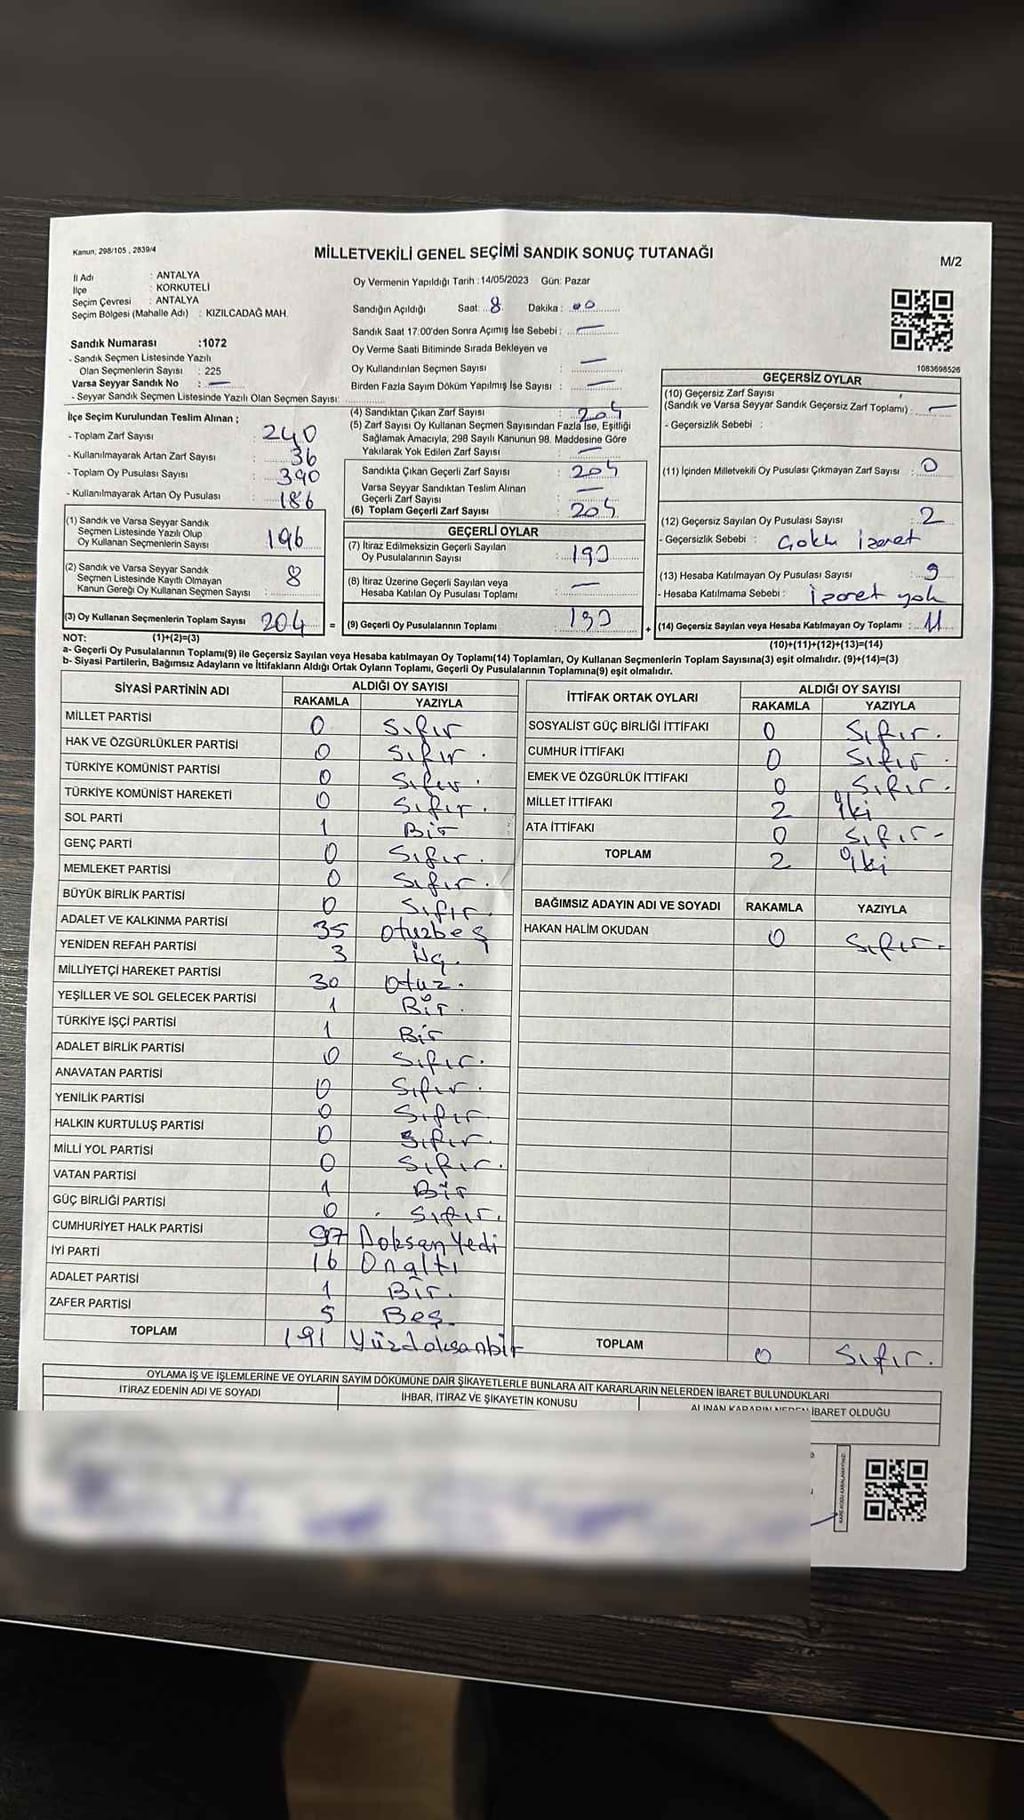 Kanun, 298/105 , 2839/4
MİLLETVEKİLİ GENEL SEÇİMİ SANDIK SONUÇ TUTANAĞI
M/2
İl Adı : ANTALYA
İlçe : KORKUTELİ
Seçim Çevresi : ANTALYA
Seçim Bölgesi (Mahalle Adı) : KIZILCADAĞ MAH.
Oy Vermenin Yapıldığı Tarih : 14/05/2023 Gün: Pazar
Sandığın Açıldığı Saat : 8 Dakika : 00
Sandık Saat 17:00'den Sonra Açımış İse Sebebi : —
Oy Verme Saati Bitiminde Sırada Bekleyen ve
Oy Kullandırılan Seçmen Sayısı : —
Birden Fazla Sayım Döküm Yapılmış İse Sayısı : —
Sandık Numarası :1072
- Sandık Seçmen Listesinde Yazılı
Olan Seçmenlerin Sayısı : 225
Varsa Seyyar Sandık No : —
- Seyyar Sandık Seçmen Listesinde Yazılı Olan Seçmen Sayısı:
1083698526
İlçe Seçim Kurulundan Teslim Alınan ;
- Toplam Zarf Sayısı : 240
- Kullanılmayarak Artan Zarf Sayısı : 36
- Toplam Oy Pusulası Sayısı : 390
- Kullanılmayarak Artan Oy Pusulası : 186
(1) Sandık ve Varsa Seyyar Sandık
Seçmen Listesinde Yazılı Olup
Oy Kullanan Seçmenlerin Sayısı : 196
(2) Sandık ve Varsa Seyyar Sandık
Seçmen Listesinde Kayıtlı Olmayan
Kanun Gereği Oy Kullanan Seçmen Sayısı : 8
(3) Oy Kullanan Seçmenlerin Toplam Sayısı 204 =
(4) Sandıktan Çıkan Zarf Sayısı : 204
(5) Zarf Sayısı Oy Kullanan Seçmen Sayısından Fazla İse, Eşitliği
Sağlamak Amacıyla, 298 Sayılı Kanunun 98. Maddesine Göre
Yakılarak Yok Edilen Zarf Sayısı : —
Sandıkta Çıkan Geçerli Zarf Sayısı : 204
Varsa Seyyar Sandıktan Teslim Alınan
Geçerli Zarf Sayısı : —
(6) Toplam Geçerli Zarf Sayısı : 204
GEÇERLİ OYLAR
(7) İtiraz Edilmeksizin Geçerli Sayılan
Oy Pusulalarının Sayısı : 193
(8) İtiraz Üzerine Geçerli Sayılan veya
Hesaba Katılan Oy Pusulası Toplamı : —
(9) Geçerli Oy Pusulalarının Toplamı : 193 +
GEÇERSİZ OYLAR
(10) Geçersiz Zarf Sayısı
(Sandık ve Varsa Seyyar Sandık Geçersiz Zarf Toplamı) : —
- Geçersizlik Sebebi :
(11) İçinden Milletvekili Oy Pusulası Çıkmayan Zarf Sayısı : 0
(12) Geçersiz Sayılan Oy Pusulası Sayısı : 2
- Geçersizlik Sebebi : Çoklu izaret
(13) Hesaba Katılmayan Oy Pusulası Sayısı : 9
- Hesaba Katılmama Sebebi : İzaret yok
(14) Geçersiz Sayılan veya Hesaba Katılmayan Oy Toplamı : 11
NOT: (1)+(2)=(3) (10)+(11)+(12)+(13)=(14)
a- Geçerli Oy Pusulalarının Toplamı(9) ile Geçersiz Sayılan veya Hesaba katılmayan Oy Toplamı(14) Toplamları, Oy Kullanan Seçmenlerin Toplam Sayısına(3) eşit olmalıdır. (9)+(14)=(3)
b- Siyasi Partilerin, Bağımsız Adayların ve İttifakların Aldığı Ortak Oyların Toplamı, Geçerli Oy Pusulalarının Toplamına(9) eşit olmalıdır.
SİYASİ PARTİNİN ADI ALDIĞI OY SAYISI
RAKAMLA YAZIYLA
MİLLET PARTİSİ 0 Sıfır
HAK VE ÖZGÜRLÜKLER PARTİSİ 0 Sıfır.
TÜRKİYE KOMÜNİST PARTİSİ 0 Sıfır.
TÜRKİYE KOMÜNİST HAREKETİ 0 Sıfır.
SOL PARTİ 1 Bir
GENÇ PARTİ 0 Sıfır.
MEMLEKET PARTİSİ 0 Sıfır.
BÜYÜK BİRLİK PARTİSİ 0 Sıfır.
ADALET VE KALKINMA PARTİSİ 35 otuzbeş
YENİDEN REFAH PARTİSİ 3 Üç.
MİLLİYETÇİ HAREKET PARTİSİ 30 otuz.
YEŞİLLER VE SOL GELECEK PARTİSİ 1 Bir.
TÜRKİYE İŞÇİ PARTİSİ 1 Bir
ADALET BİRLİK PARTİSİ 0 Sıfır.
ANAVATAN PARTİSİ 0 Sıfır.
YENİLİK PARTİSİ 0 Sıfır
HALKIN KURTULUŞ PARTİSİ 0 Sıfır.
MİLLİ YOL PARTİSİ 0 Sıfır.
VATAN PARTİSİ 1 Bir
GÜÇ BİRLİĞİ PARTİSİ 0 Sıfır.
CUMHURİYET HALK PARTİSİ 97 Doksan Yedi
İYİ PARTİ 16 Onaltı
ADALET PARTİSİ 1 Bir.
ZAFER PARTİSİ 5 Beş.
TOPLAM 191 Yüzdoksanbir
İTTİFAK ORTAK OYLARI ALDIĞI OY SAYISI
RAKAMLA YAZIYLA
SOSYALİST GÜÇ BİRLİĞİ İTTİFAKI 0 Sıfır.
CUMHUR İTTİFAKI 0 Sıfır.
EMEK VE ÖZGÜRLÜK İTTİFAKI 0 Sıfır.
MİLLET İTTİFAKI 2 iki
ATA İTTİFAKI 0 Sıfır.
TOPLAM 2 iki
BAĞIMSIZ ADAYIN ADI VE SOYADI RAKAMLA YAZIYLA
HAKAN HALİM OKUDAN 0 Sıfır.
TOPLAM 0 Sıfır.
OYLAMA İŞ VE İŞLEMLERİNE VE OYLARIN SAYIM DÖKÜMÜNE DAİR ŞİKAYETLERLE BUNLARA AİT KARARLARIN NELERDEN İBARET BULUNDUKLARI
İTİRAZ EDENİN ADI VE SOYADI
İHBAR, İTİRAZ VE ŞİKAYETİN KONUSU
ALINAN KARARIN NEDEN İBARET OLDUĞU